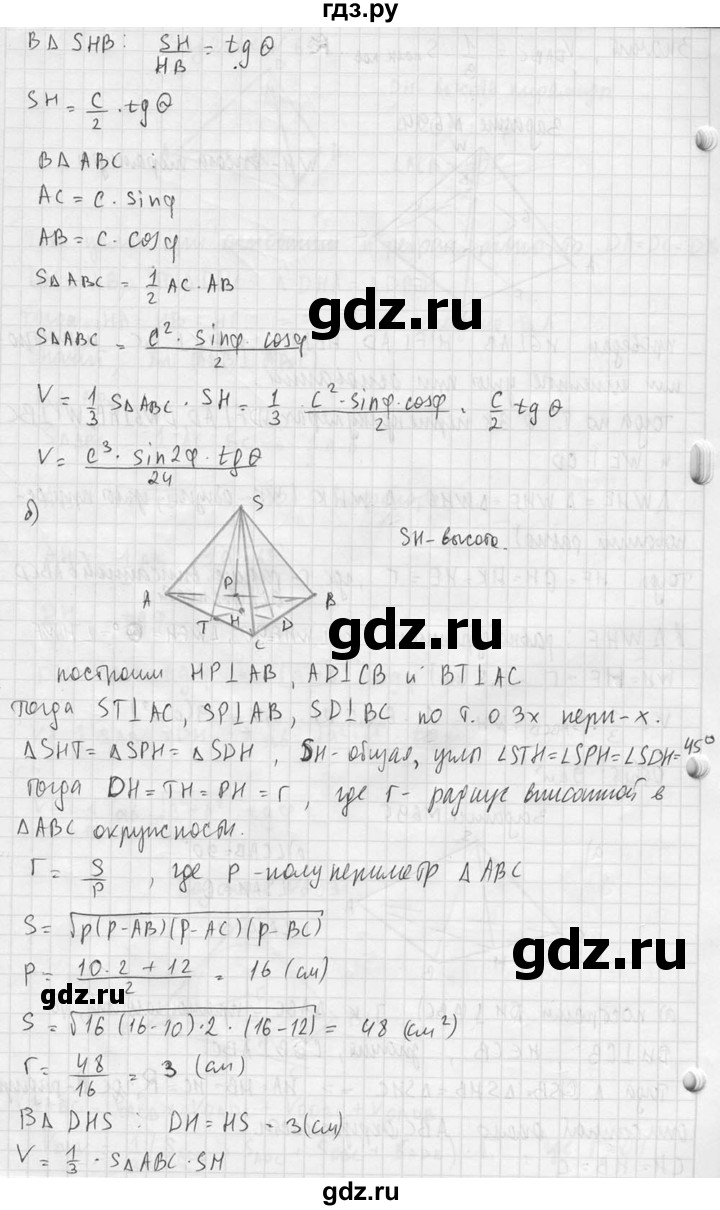 гдз.ру
В Δ SHB: SH/HB = tgθ
SH = c/2 · tgθ
В Δ ABC :
AC = c · sinφ
AB = c · cosφ
SΔABC = 1/2 AC · AB
gdz.ru
SΔABC = c² · sinφ · cosφ / 2
V = 1/3 SΔABC · SH = 1/3 · c² · sinφ · cosφ / 2 · c/2 tgθ
V = c³ · sin2φ · tgθ / 24
б)
S
SH - высота.
A P B
T H D
C
gdz.ru
построим HP⊥AB, AD⊥CB и BT⊥AC
тогда ST⊥AC, SP⊥AB, SD⊥BC по т. о 3х перп-х.
ΔSHT = ΔSPH = ΔSDH, SH - общая, углы ∠STH = ∠SPH = ∠SDH = 45°
тогда DH = TH = PH = r, где r - радиус вписанной в
ΔABC окружности.
r = S/p, где p - полупериметр ΔABC
S = √p(p-AB)(p-AC)(p-BC)
gdz.ru
p = 10·2+12 / 2 = 16 (см)
gdz.ru
S = √16(16-10)·2·(16-12) = 48 (см²)
r = 48/16 = 3 (см)
В Δ DHS : DH = HS = 3(см)
V = 1/3 · SΔABC · SH
gdz.ru